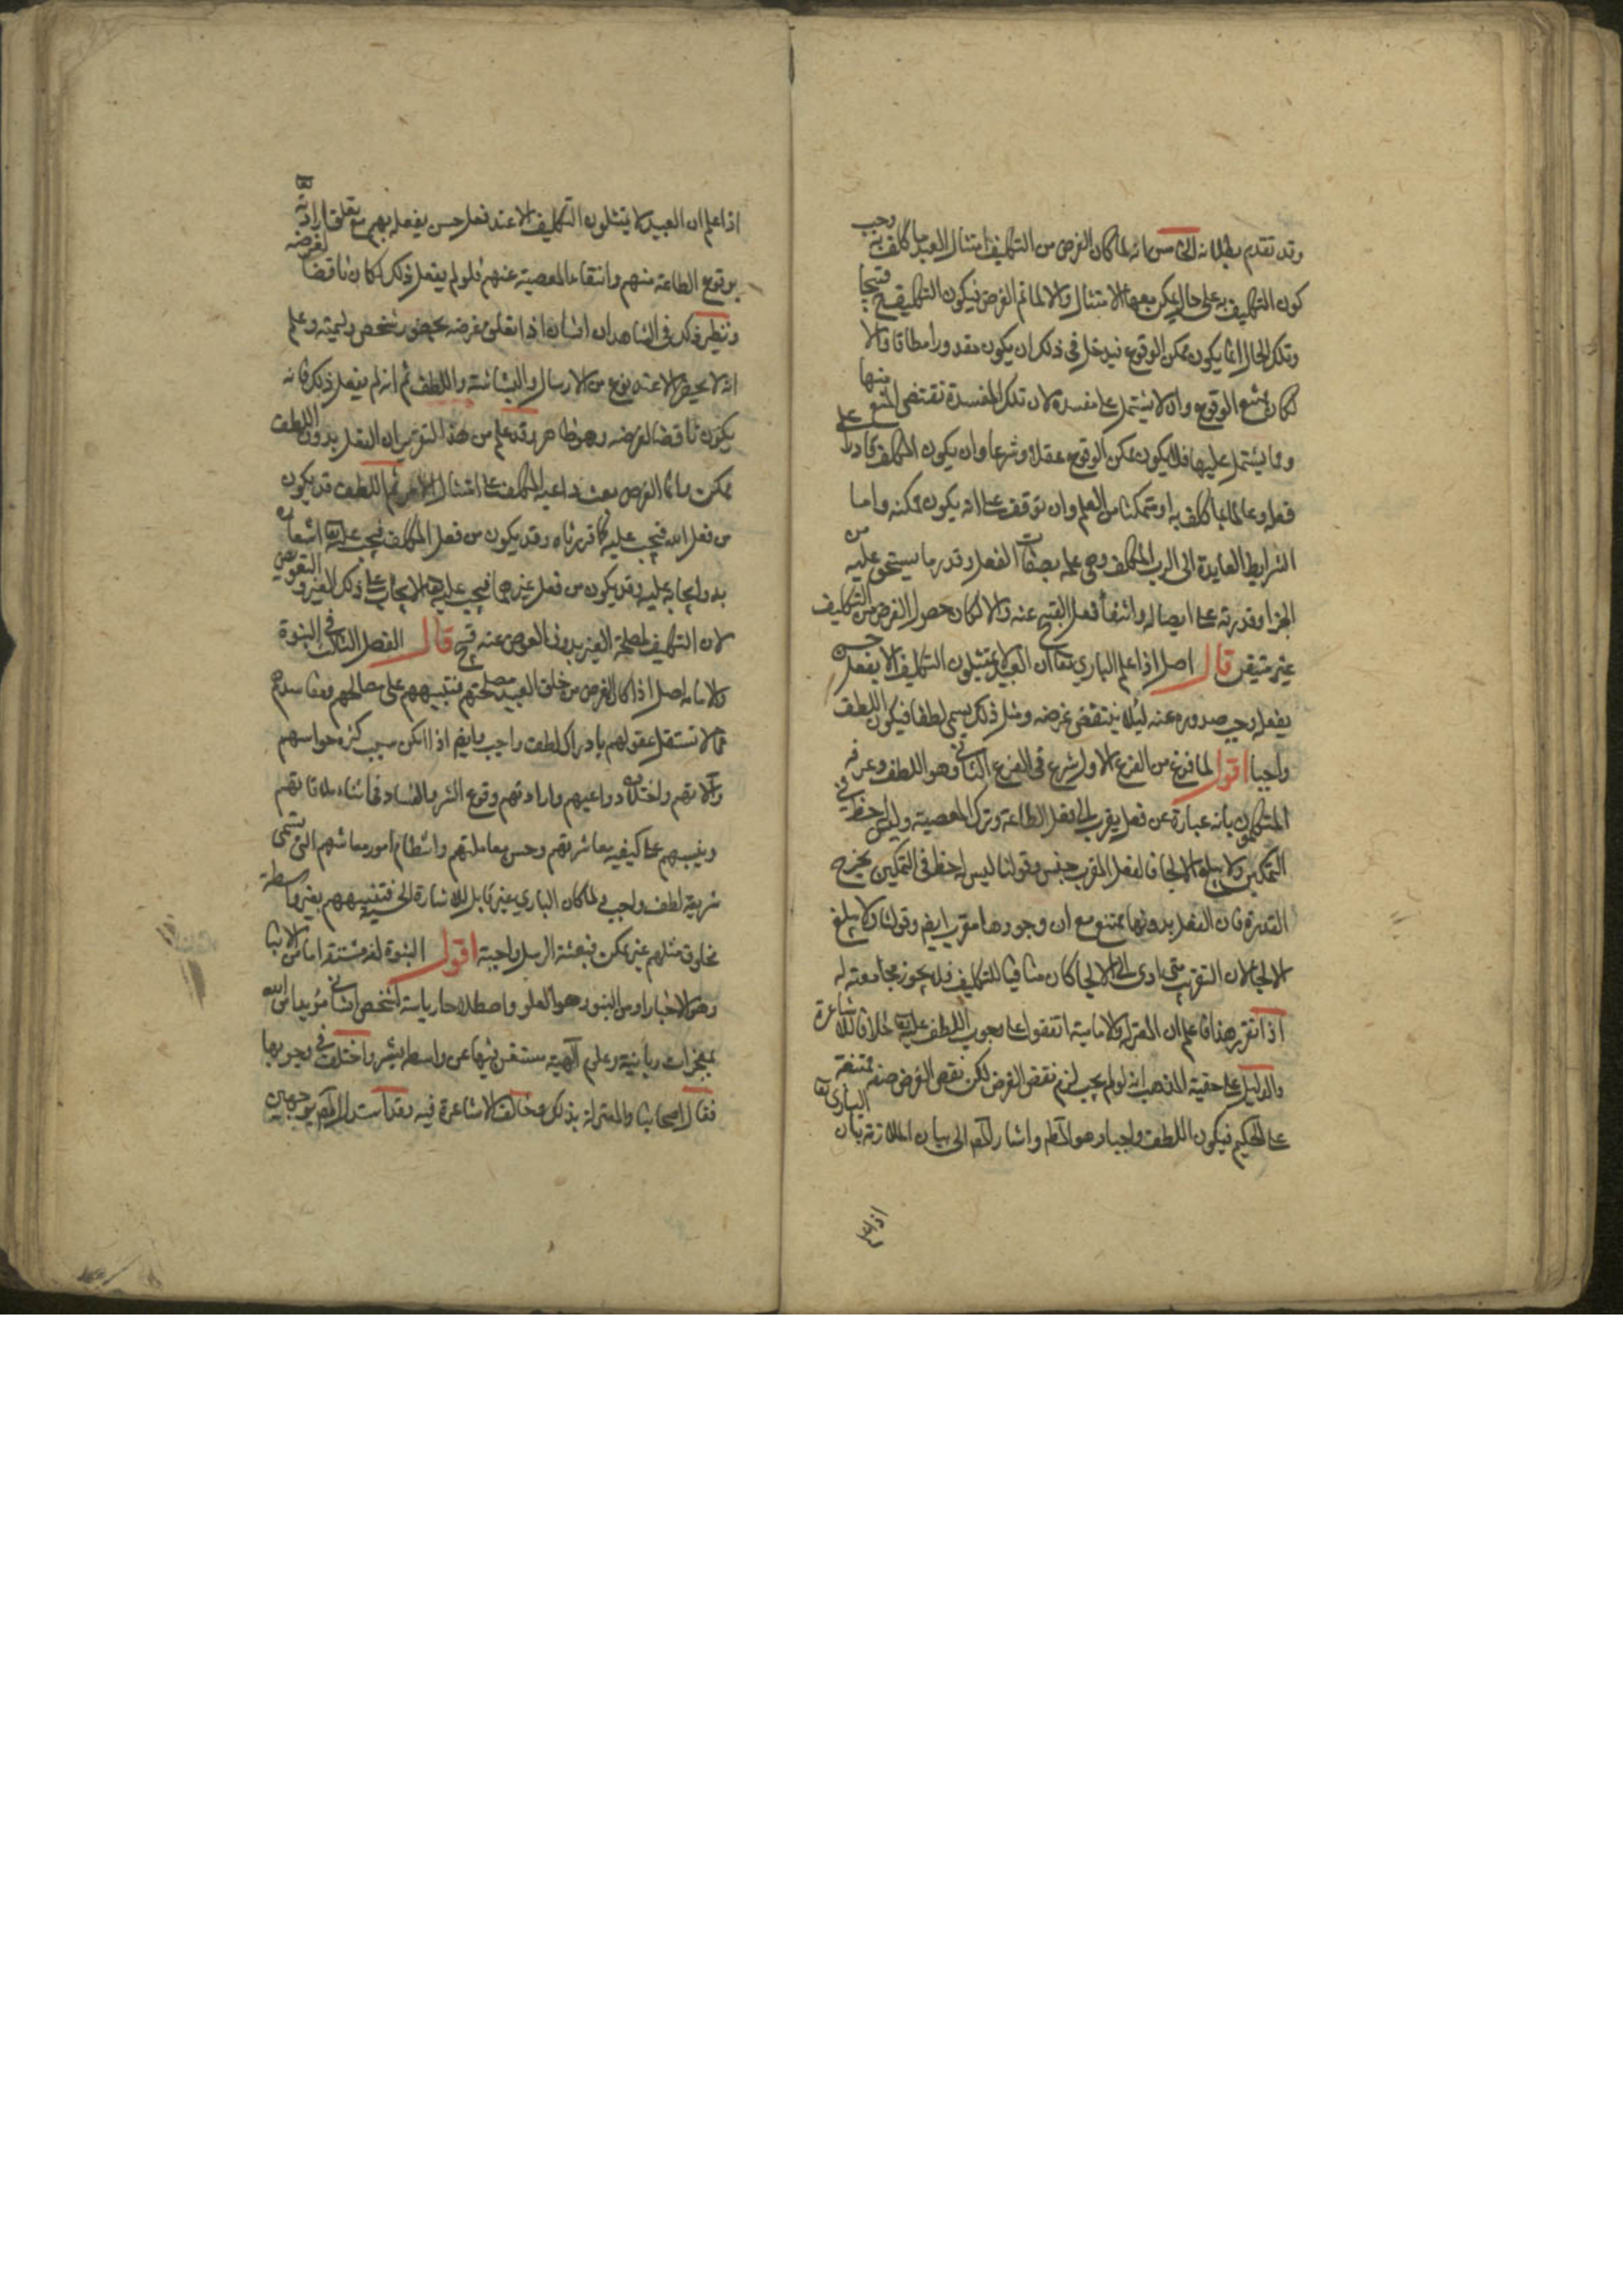 وقد تقدم بطلانه الخامس انه لما كان الغرض من التكليف امتثال العبد ما كلف به وجب
كون التكليف به على حال يمكن معها الامتثال والا لما تم الغرض فيكون التكليف قبيحا
وتلك الحال انما يكون ممكن الوقوع فيدخل في ذلك ان يكون مقدورا مطاقا والا
لكان ممتنع الوقوع وان لا يشتمل على مفسدة لان تلك المفسدة تقتضي المنع منها
وما يشتمل عليها فلا يكون ممكن الوقوع عقلا وشرعا وان يكون المكلف قادرا على
فعله وعالما بما كلف به او متمكنا من العلم وان توقف على اله يكون ممكنه واما
الشرايط العايدة الى الرب المكلف وهي علمه بصفات الفعل وقدر ما يستحق عليه من
الجزا وقدرته على ايصاله وانتفأ فعل القبيح عنه والا لكان حصول الغرض من التكليف
غير متيقن قال اصل اذا علم الباري تعا ان العبيد لا يمتثلون التكليف الا بفعل حسن
يفعله وجب صدوره عنه ليلا ينتقض غرضه ومثل ذلك يسمى لطفا فيكون اللطف
واجبا اقول لما فرغ من الفرع الاول شرع في الفرع الثاني وهو اللطف وعرفه
المتكلمون بانه عبارة عن فعل يقرب الى فعل الطاعة وترك المعصية وليس له حظ في
التمكين ولا يبلغ الالجا فالفعل المقرب جنس وقولنا ليس له حظ في التمكين يخرج
القدرة فان الفعل بدونها ممتنع مع ان وجودها مقرب ايضا وقولنا ولا يبلغ
الالجا لان التقريب متى ادى الى الالجا كان منافيا للتكليف فلا يجوز مجامعته له
اذا تقرر هذا فاعلم ان المعتزله والامامية اتفقوا على وجوب اللطف عليه تعا خلافا للاشاعرة
والدليل على حقية المذهب انه لو لم يجب لزم نقض الغرض لكن نقض الغرض صفة ممتنعة
على الحكيم فيكون اللطف واجبا وهو المط واشار المص الى بيان الملازمة بان الباري تعا
اذا علم
اذا علم ان العبيد لا يمتثلون التكليف الا عند فعل حسن يفعله بهم مع تعلق ارادته
بوقوع الطاعة منهم وانتفاء المعصية عنهم فلو لم يفعل ذلك لكان ناقضا لغرضه
ونظير ذلك في الشاهد ان انسانا اذا تعلق غرضه بحضور شخص وليمته وعلم
انه لا يحضر الا عند نوع من الارسال والبشاشة واللطف ثم انه لم يفعل ذلك فانه
يكون ناقضا لغرضه وهو ظاهر وقد علم من هذا التقرير ان الفعل بدون اللطف
ممكن وانما الغرض بعث داعيه المكلف على امتثال الامر ثم اللطف قد يكون
من فعل الله فتجب عليه كما قررناه وقد يكون من فعل المكلف فيجب عليه تعا اشعاره
به وايجابه عليه وقد يكون من فعل غيرهما فيجب عليه تعا الايجاب على ذلك الغير والتعويض
لان التكليف لمصلحة الغير بدون العوض عنه قبيح قال الفصل الثالث في النبوة
والامامه اصل اذا كان الغرض من خلق العبيد مصلحتهم فتنبيههم على مصالحهم ومفاسدهم
مما لا تستقل عقولهم بادراكه لطف واجب وايضا اذا امكن بسبب كثرة حواسهم
وآلاتهم واختلاف دواعيهم واراداتهم وقوع الشر والفساد في اثناء ملاقاتهم
وينبههم على كيفيه معاشرتهم وحسن معاملتهم وانتظام امور معاشهم التي تسمى
شريعة لطف واجب ولما كان الباري غير قابل للاشارة الحسية فتنبيههم بغير واسطة
مخلوق مثلهم غير ممكن فبعثة الرسل واجبة اقول النبوة لغة مشتقة اما من الانبا
وهو الاخبار او من النبو وهو العلو واصطلاحا رياسة لشخص انساني مؤيدا من الله
بمعجزات ربانية وعلوم آلهية مستغن فيها عن واسطة بشر واختلف في وجوبها
فقال اصحابنا والمعتزلة بذلك وخالف الاشاعرة فيه وقد استدل المص بوجهين